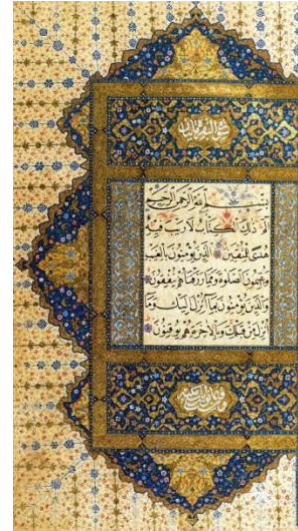 بسم الله الرحمن الرحيم
الم ذلك الكتاب لا ريب فيه
هدى للمتقين الذين يؤمنون بالغيب
ويقيمون الصلوة ومما رزقناهم ينفقون
والذين يؤمنون بما أنزل إليك وما
أنزل من قبلك وبالآخرة هم يوقنون